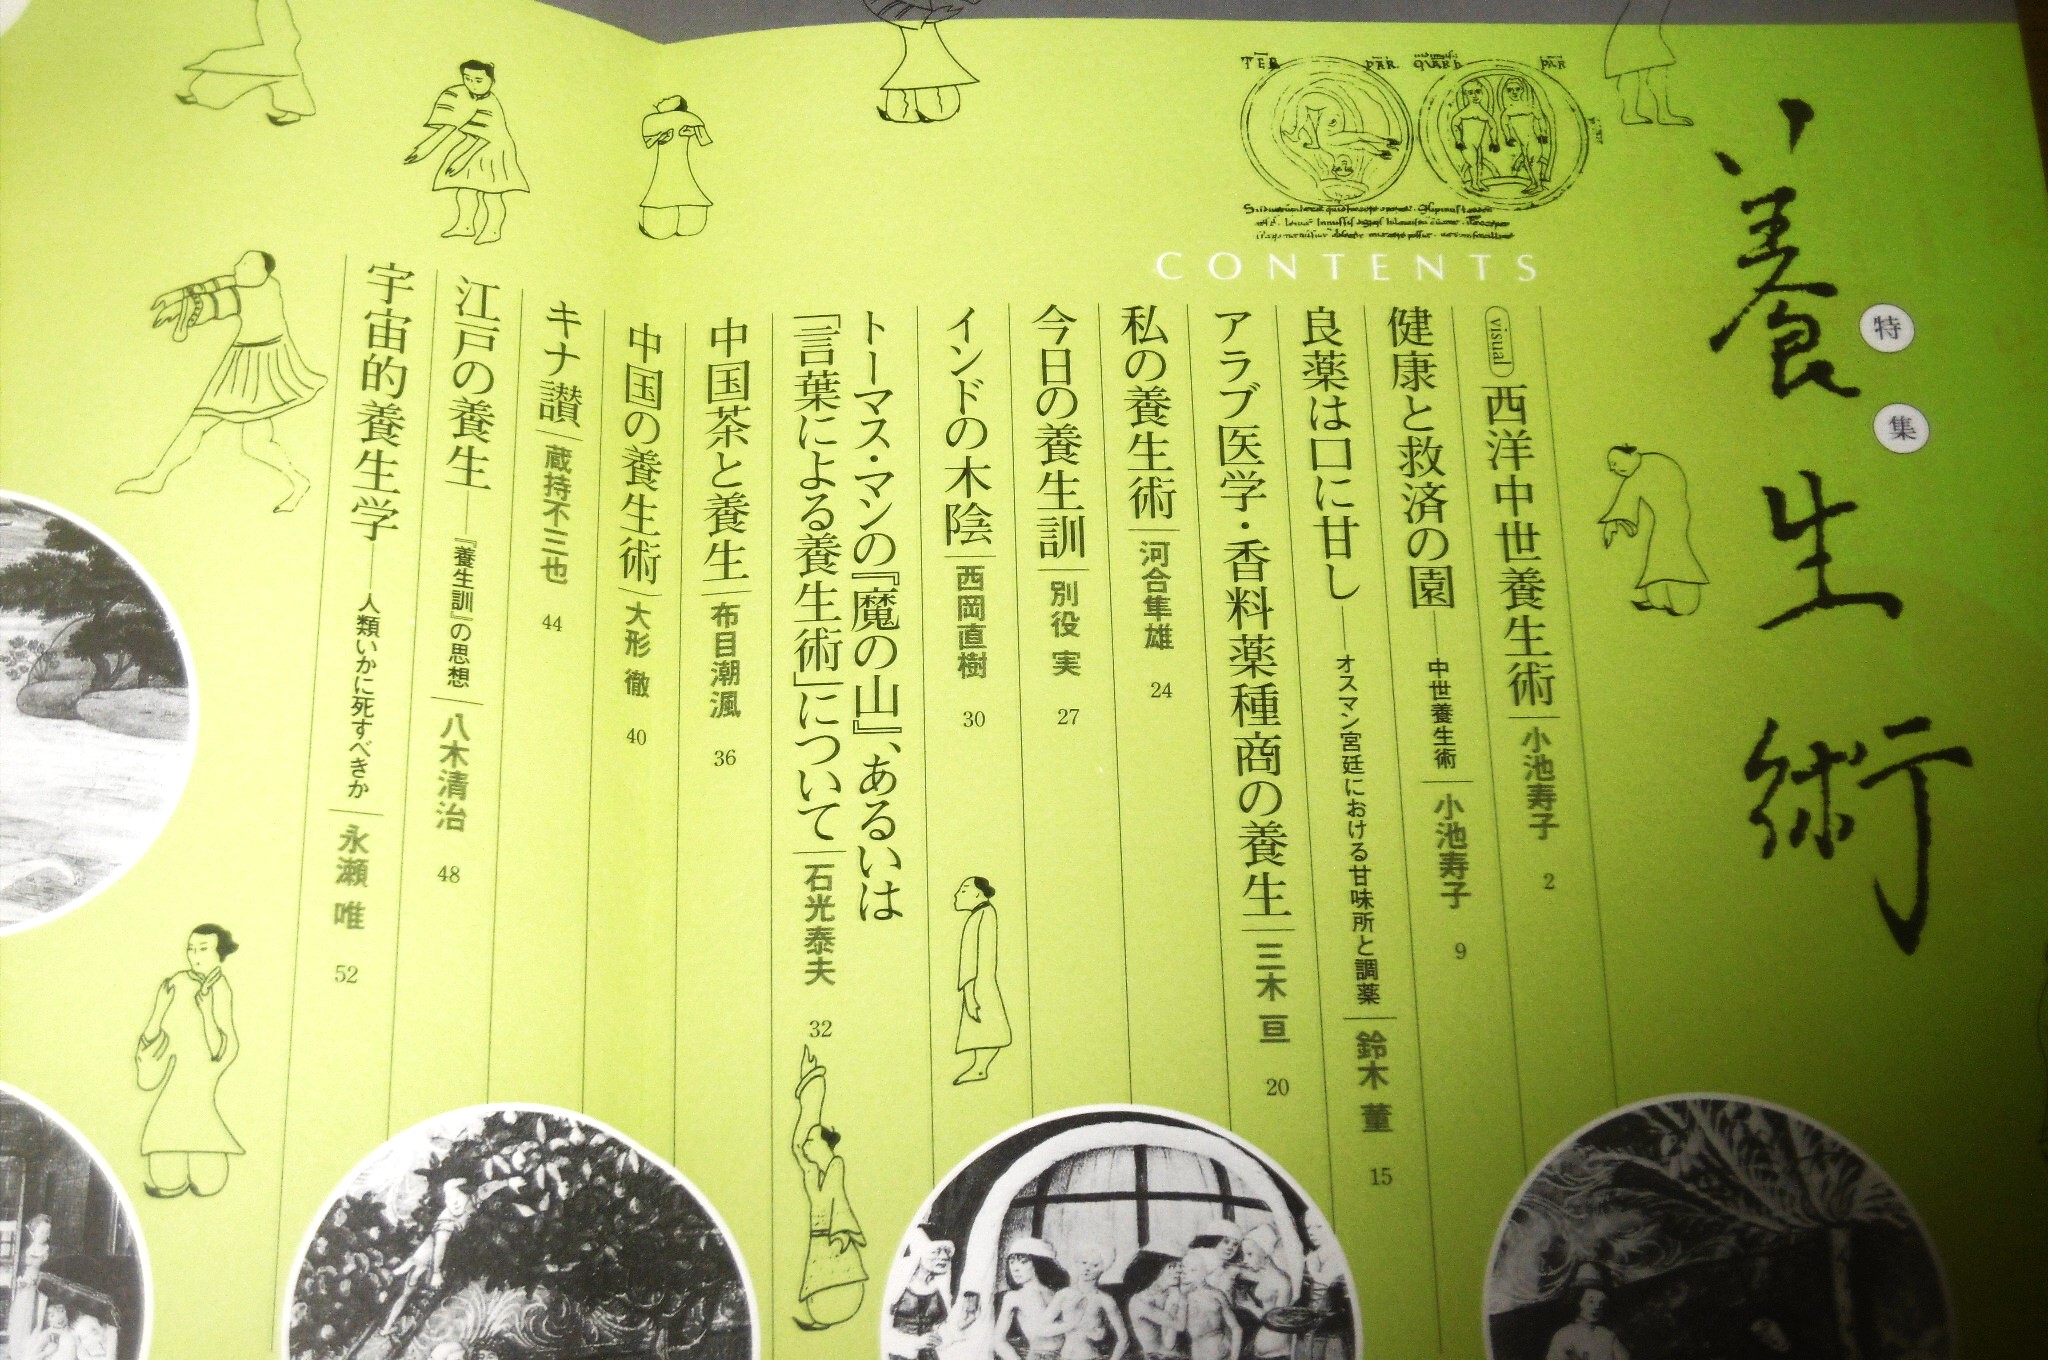 特集
養生術
TER PAR. QUAR PAR
CONTENTS
visual 西洋中世養生術 小池寿子 2
健康と救済の園 ― 中世養生術 小池寿子 9
良薬は口に甘し ― オスマン宮廷における甘味所と調薬 鈴木 董 15
アラブ医学・香料薬種商の養生 三木 亘 20
私の養生術 河合隼雄 24
今日の養生訓 別役 実 27
インドの木陰 西岡直樹 30
トーマス・マンの『魔の山』、あるいは
「言葉による養生術」について 石光泰夫 32
中国茶と養生 布目潮渢 36
中国の養生術 大形 徹 40
キナ讃 蔵持不三也 44
江戸の養生 ―『養生訓』の思想 八木清治 48
宇宙的養生学 ― 人類いかに死すべきか 永瀬 唯 52